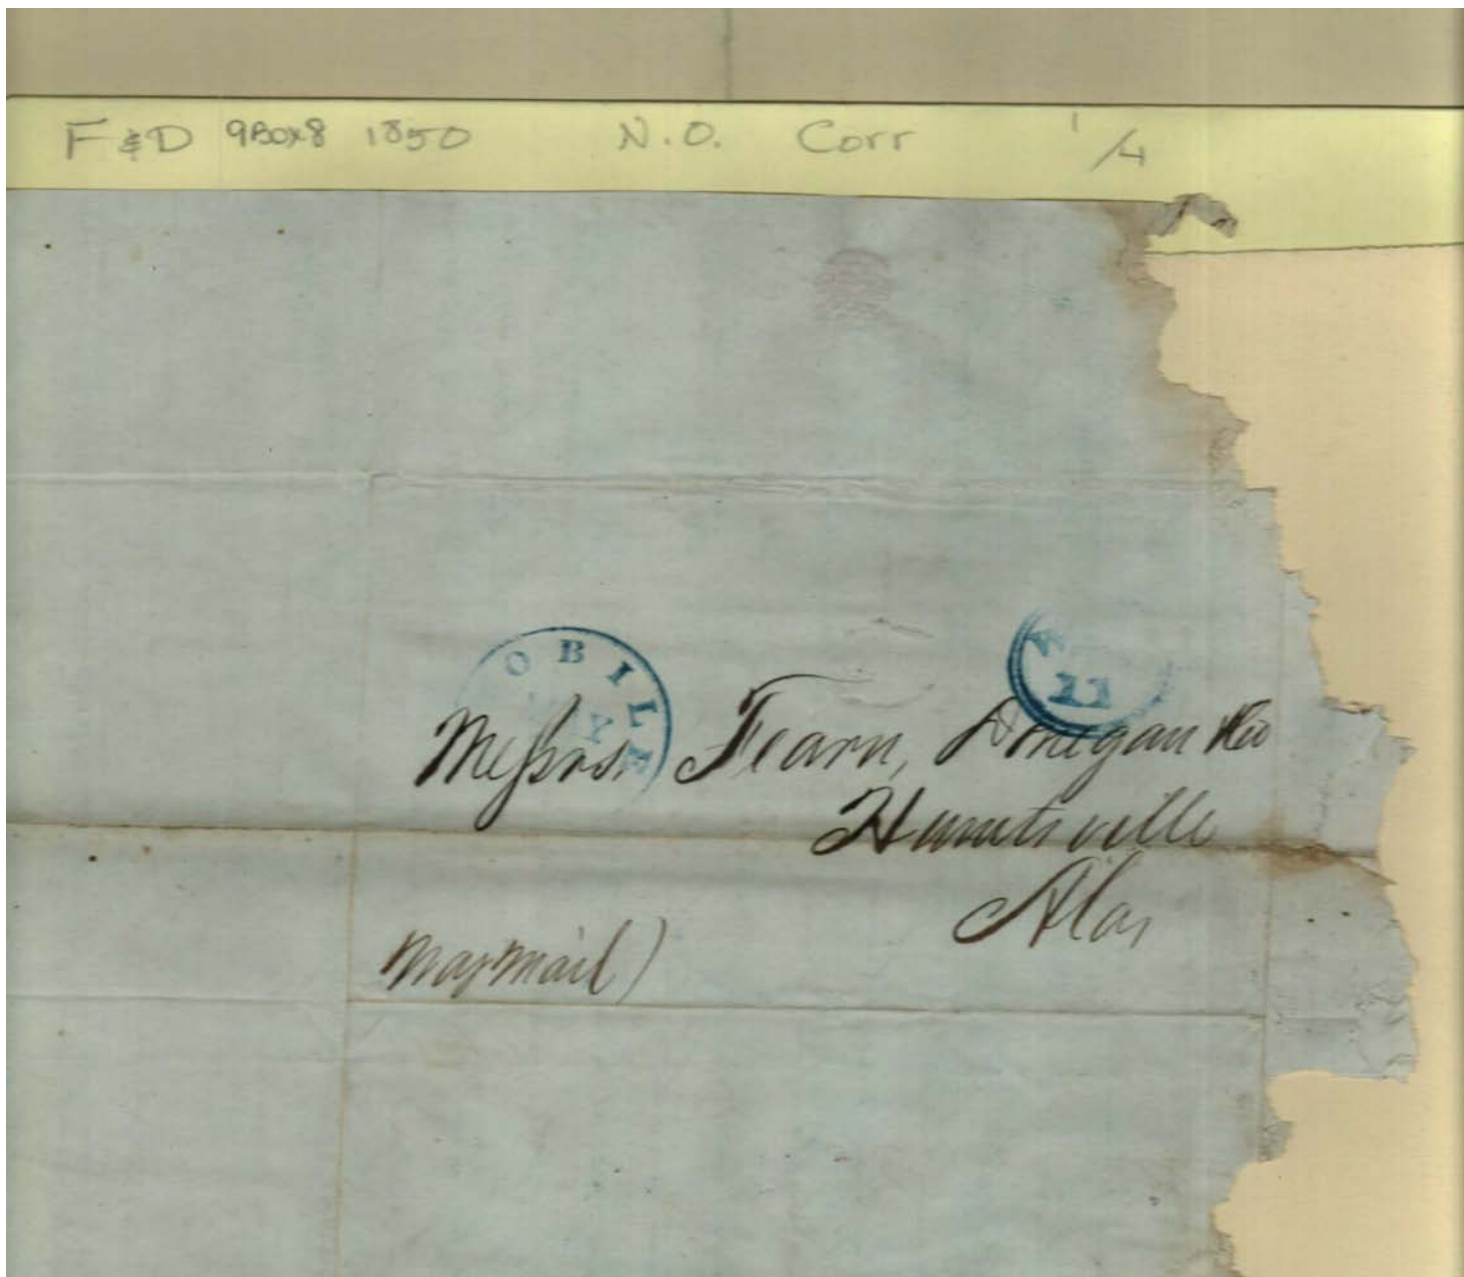 F & D 9Box8 1850 N.O. Corr 1/4
OBILE
11
Messrs Fearn, Donegan & Co
Huntsville
Ala,
mail)